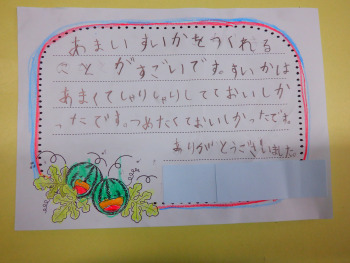 あまいすいかをつくれる
ことがすごいです。すいかは
あまくてしゃりしゃりしてておいしか
ったです。つめたくておいしかったです。
ありがとうございました。